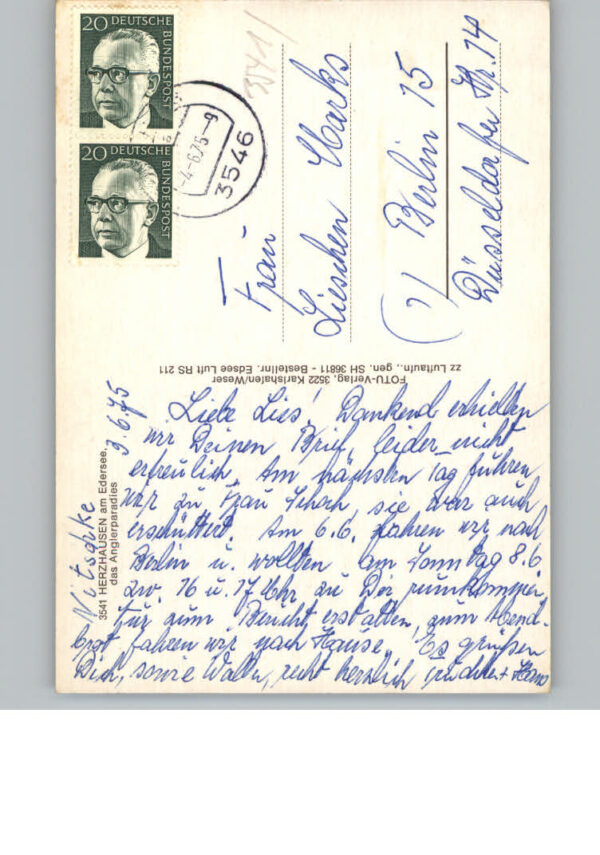 20 DEUTSCHE BUNDESPOST
20 DEUTSCHE BUNDESPOST
-4.-6.75-9
3546
3541
Frau
Lieschen Marks
(1) Berlin 15
Düsseldorfer Str. 74
zz Luftaufn., gen. SH 36811 - Bestellnr. Edsee Luft RS 211
FOTU-Verlag, 3522 Karlshafen/Weser
3541 HERZHAUSEN am Edersee,
das Anglerparadies
Nitschke
3.6.75
Liebe Lies! Dankend erhielten
wir Deinen Brief, leider nicht
erfreulich. Am nächsten Tag fuhren
wir zu Frau, sie war auch
erschüttert. Am 6.6. fahren wir nach
Berlin u. wollten am Sonntag 8.6
zw. 16 u. 17 Uhr zu Dir rumkommen,
nur zum Bericht erstatten, zum Abend-
brot fahren wir nach Hause. Es grüßen
Dich, sowie, recht herzlich + Hans